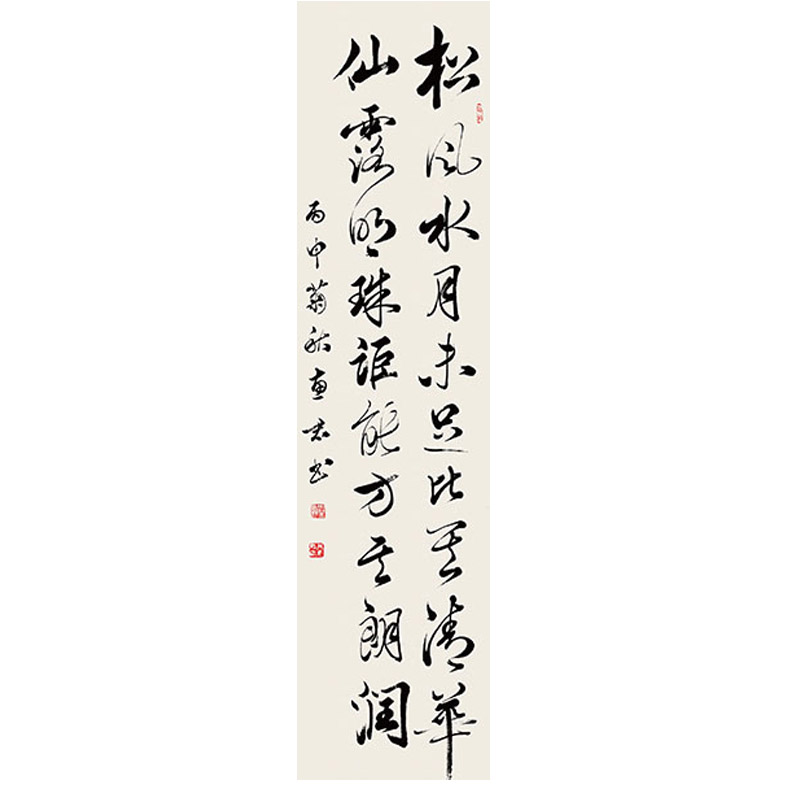 松风水月未足比其清華
仙露明珠詎能方其朗润
丙申菊秋惠君书